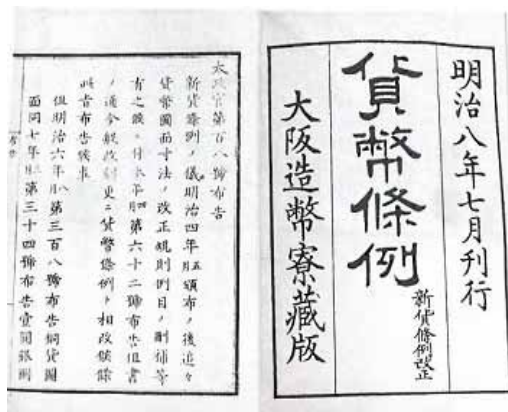 明治八年七月刊行
貨幣條例
新貨條例改正
大阪造幣寮藏版
太政官第百八號布告
新貨條例ノ儀明治四年五月頒布ノ後追々
貨幣圖面寸法ノ改正規則例目ノ刪補等
有之候ニ付本年 第六十二號布告但書
ノ通今般改刪更ニ貨幣條例ト相改候條
此旨布告候事
但明治六年八月第三百八號布告銅貨圖
面同七年 第三十四號布告壹圓銀